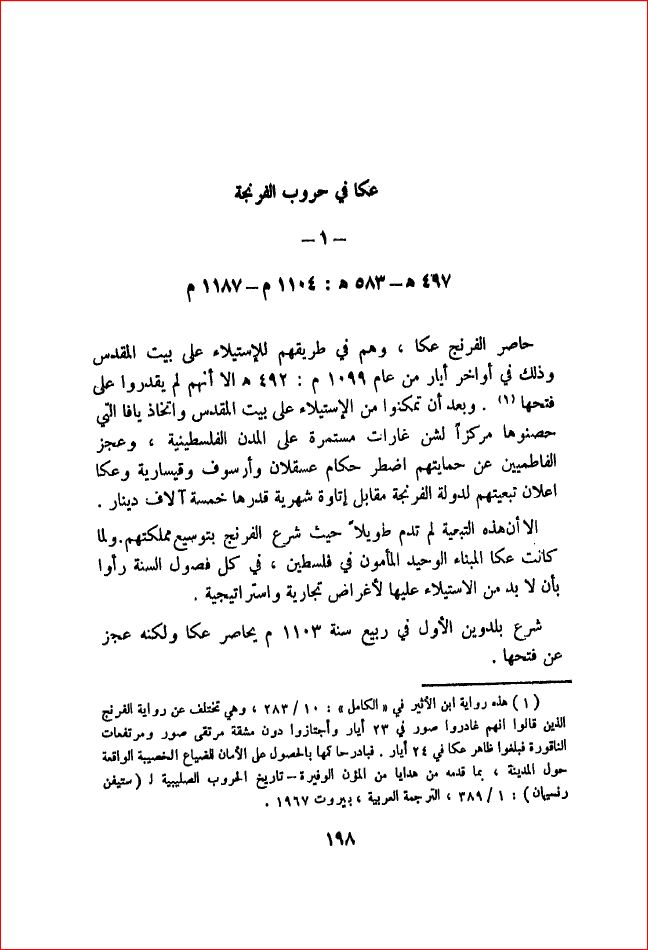 عكا في حروب الفرنجة
– ١ –
٤٩٧ هـ – ٥٨٣ هـ : ١١٠٤ م – ١١٨٧ م
حاصر الفرنج عكا ، وهم في طريقهم للإستيلاء على بيت المقدس
وذلك في أواخر أيار من عام ١٠٩٩ م : ٤٩٢ هـ الا أنهم لم يقدروا على
فتحها (١) . وبعد أن تمكنوا من الإستيلاء على بيت المقدس واتخاذ يافا التي
حصنوها مركزاً لشن غارات مستمرة على المدن الفلسطينية ، وعجز
الفاطميين عن حمايتهم اضطر حكام عسقلان وأرسوف وقيسارية وعكا
اعلان تبعيتهم لدولة الفرنجة مقابل إتاوة شهرية قدرها خمسة آلاف دينار .
الا أن هذه التبعية لم تدم طويلاً حيث شرع الفرنج بتوسيع مملكتهم. ولما
كانت عكا الميناء الوحيد المأمون في فلسطين ، في كل فصول السنة رأوا
بأن لا بد من الاستيلاء عليها لأغراض تجارية واستراتيجية .
شرع بلدوين الأول في ربيع سنة ١١٠٣ م يحاصر عكا ولكنه عجز
عن فتحها .
(١) هذه رواية ابن الأثير في «الكامل» : ١٠ / ٢٨٣ ، وهي تختلف عن رواية الفرنج
الذين قالوا انهم غادروا صور في ٢٣ أيار وأجتازوا دون مشقة مرتقى صور ومرتفعات
الناقورة فبلغوا ظاهر عكا في ٢٤ أيار . فبادر حاكمها بالحصول على الأمان للضياع الخصيبة الواقعة
حول المدينة ، بما قدمه من هدايا من المؤن الوفيرة – تاريخ الحروب الصليبية لـ (ستيفن
رنسيمان) : ١ / ٣٨٩ ، الترجمة العربية ، بيروت ١٩٦٧ .
١٩٨